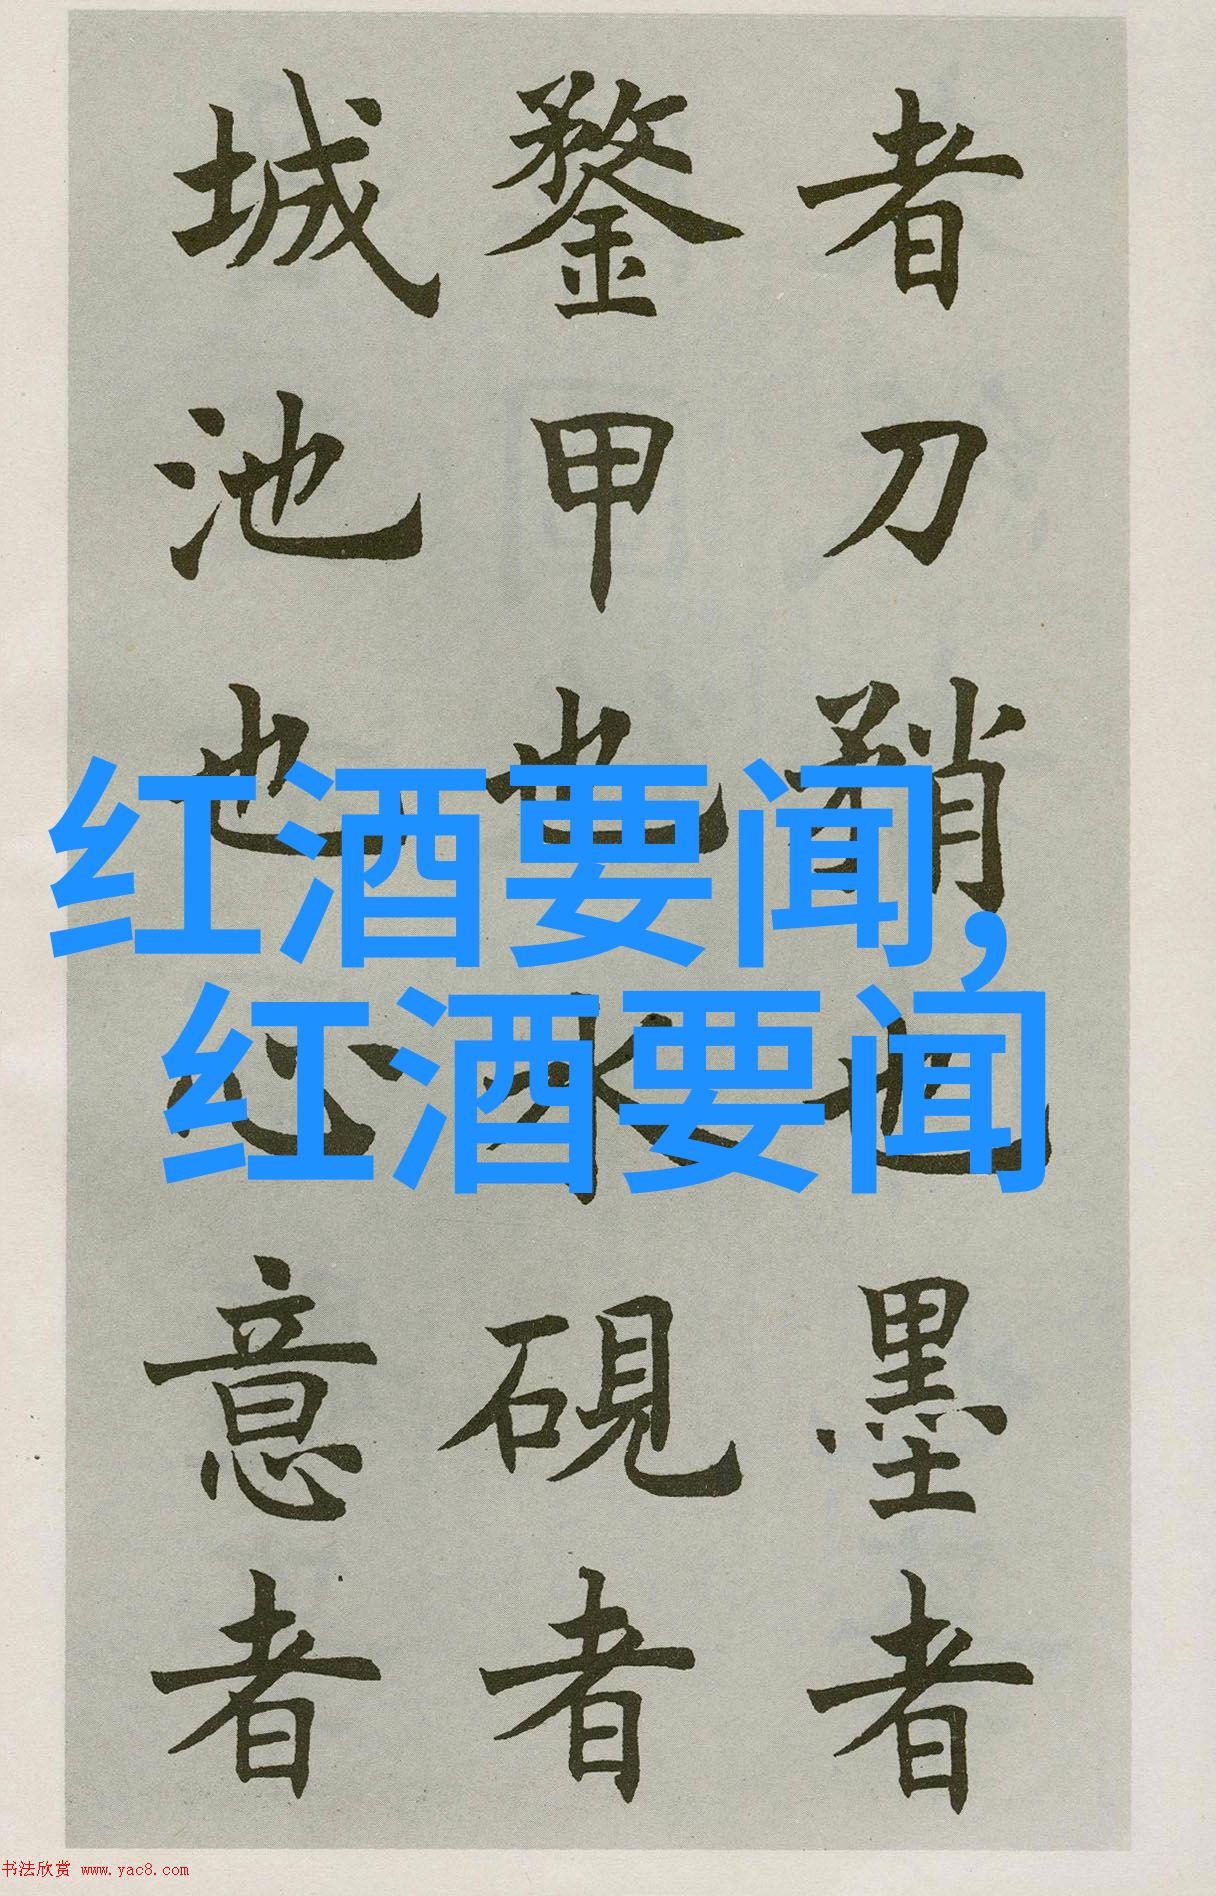 者刀矟也墨者
鍪甲也水硯者
城池也心意者
红酒要闻,
红酒要闻
书法欣赏 www.yac8.com